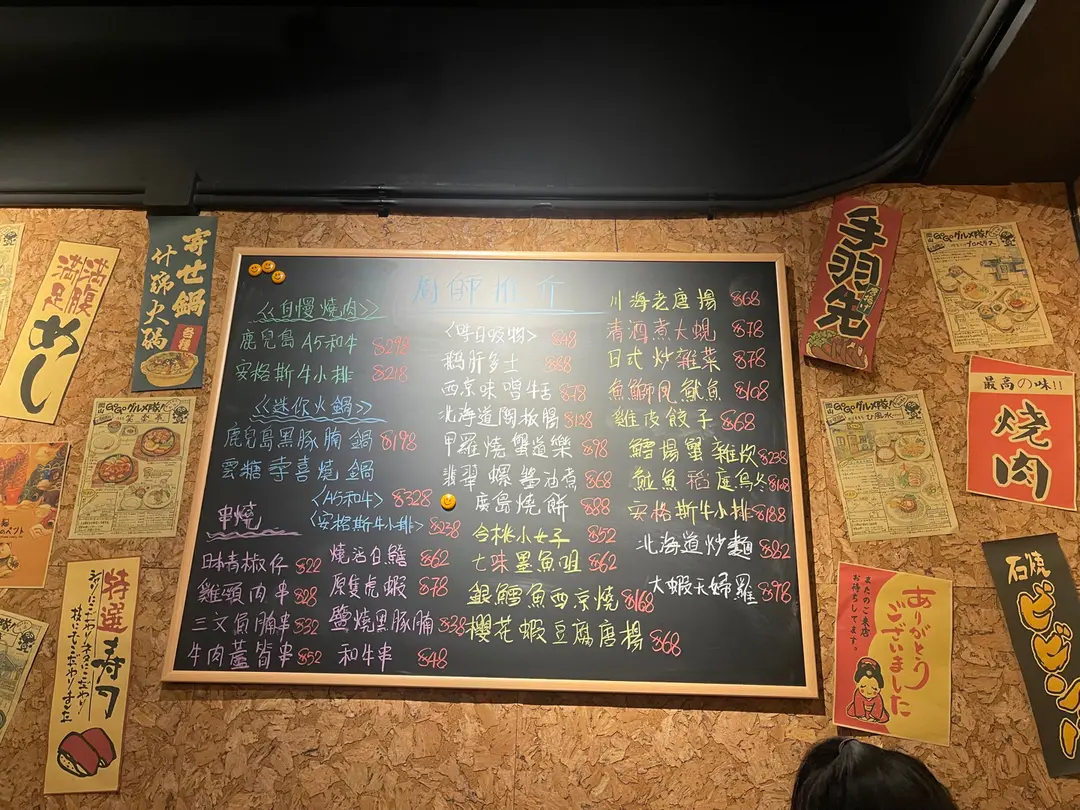 廚師推介
<<自慢燒肉>>
鹿兒島A5和牛 $298
安格斯牛小排 $218
<<迷你火鍋>>
鹿兒島黑豚腩鍋 $198
雲糖李喜燒鍋
<A5和牛> $328
<安格斯牛小排> $238
串燒
日本青椒仔 $22
雞頸肉串 $28
三文魚腩串 $32
牛肉蘆筍串 $52
燒活白鱔 $62
原隻虎蝦 $78
鹽燒黑豚腩 $38
和牛串 $48
$48
鵝肝多士 $88
西京味噌牛舌 $78
北海道關板腸 $128
甲羅燒蟹道樂 $98
翡翠螺醬油煮 $68
廣島燒餅 $88
今桃小女子 $52
七味墨魚咀 $62
銀鱈魚西京燒 $168
櫻花蝦豆腐唐揚 $68
川海老唐揚 $68
清酒煮大蜆 $78
日式炒雜菜 $78
$108
雞皮餃子 $68
鱈場蟹雜炊 $238
魚稻庭烏冬 $168
安格斯牛小排 $188
北海道炒麵 $82
大蝦天婦羅 $98
寄世鍋
什錦火鍋
各種
満腹
満足
めし
特選寿司
手羽先
最高の味!!
焼肉
石焼ビビンバー
ありがとうございました
またのご来店
お待ちしてます。